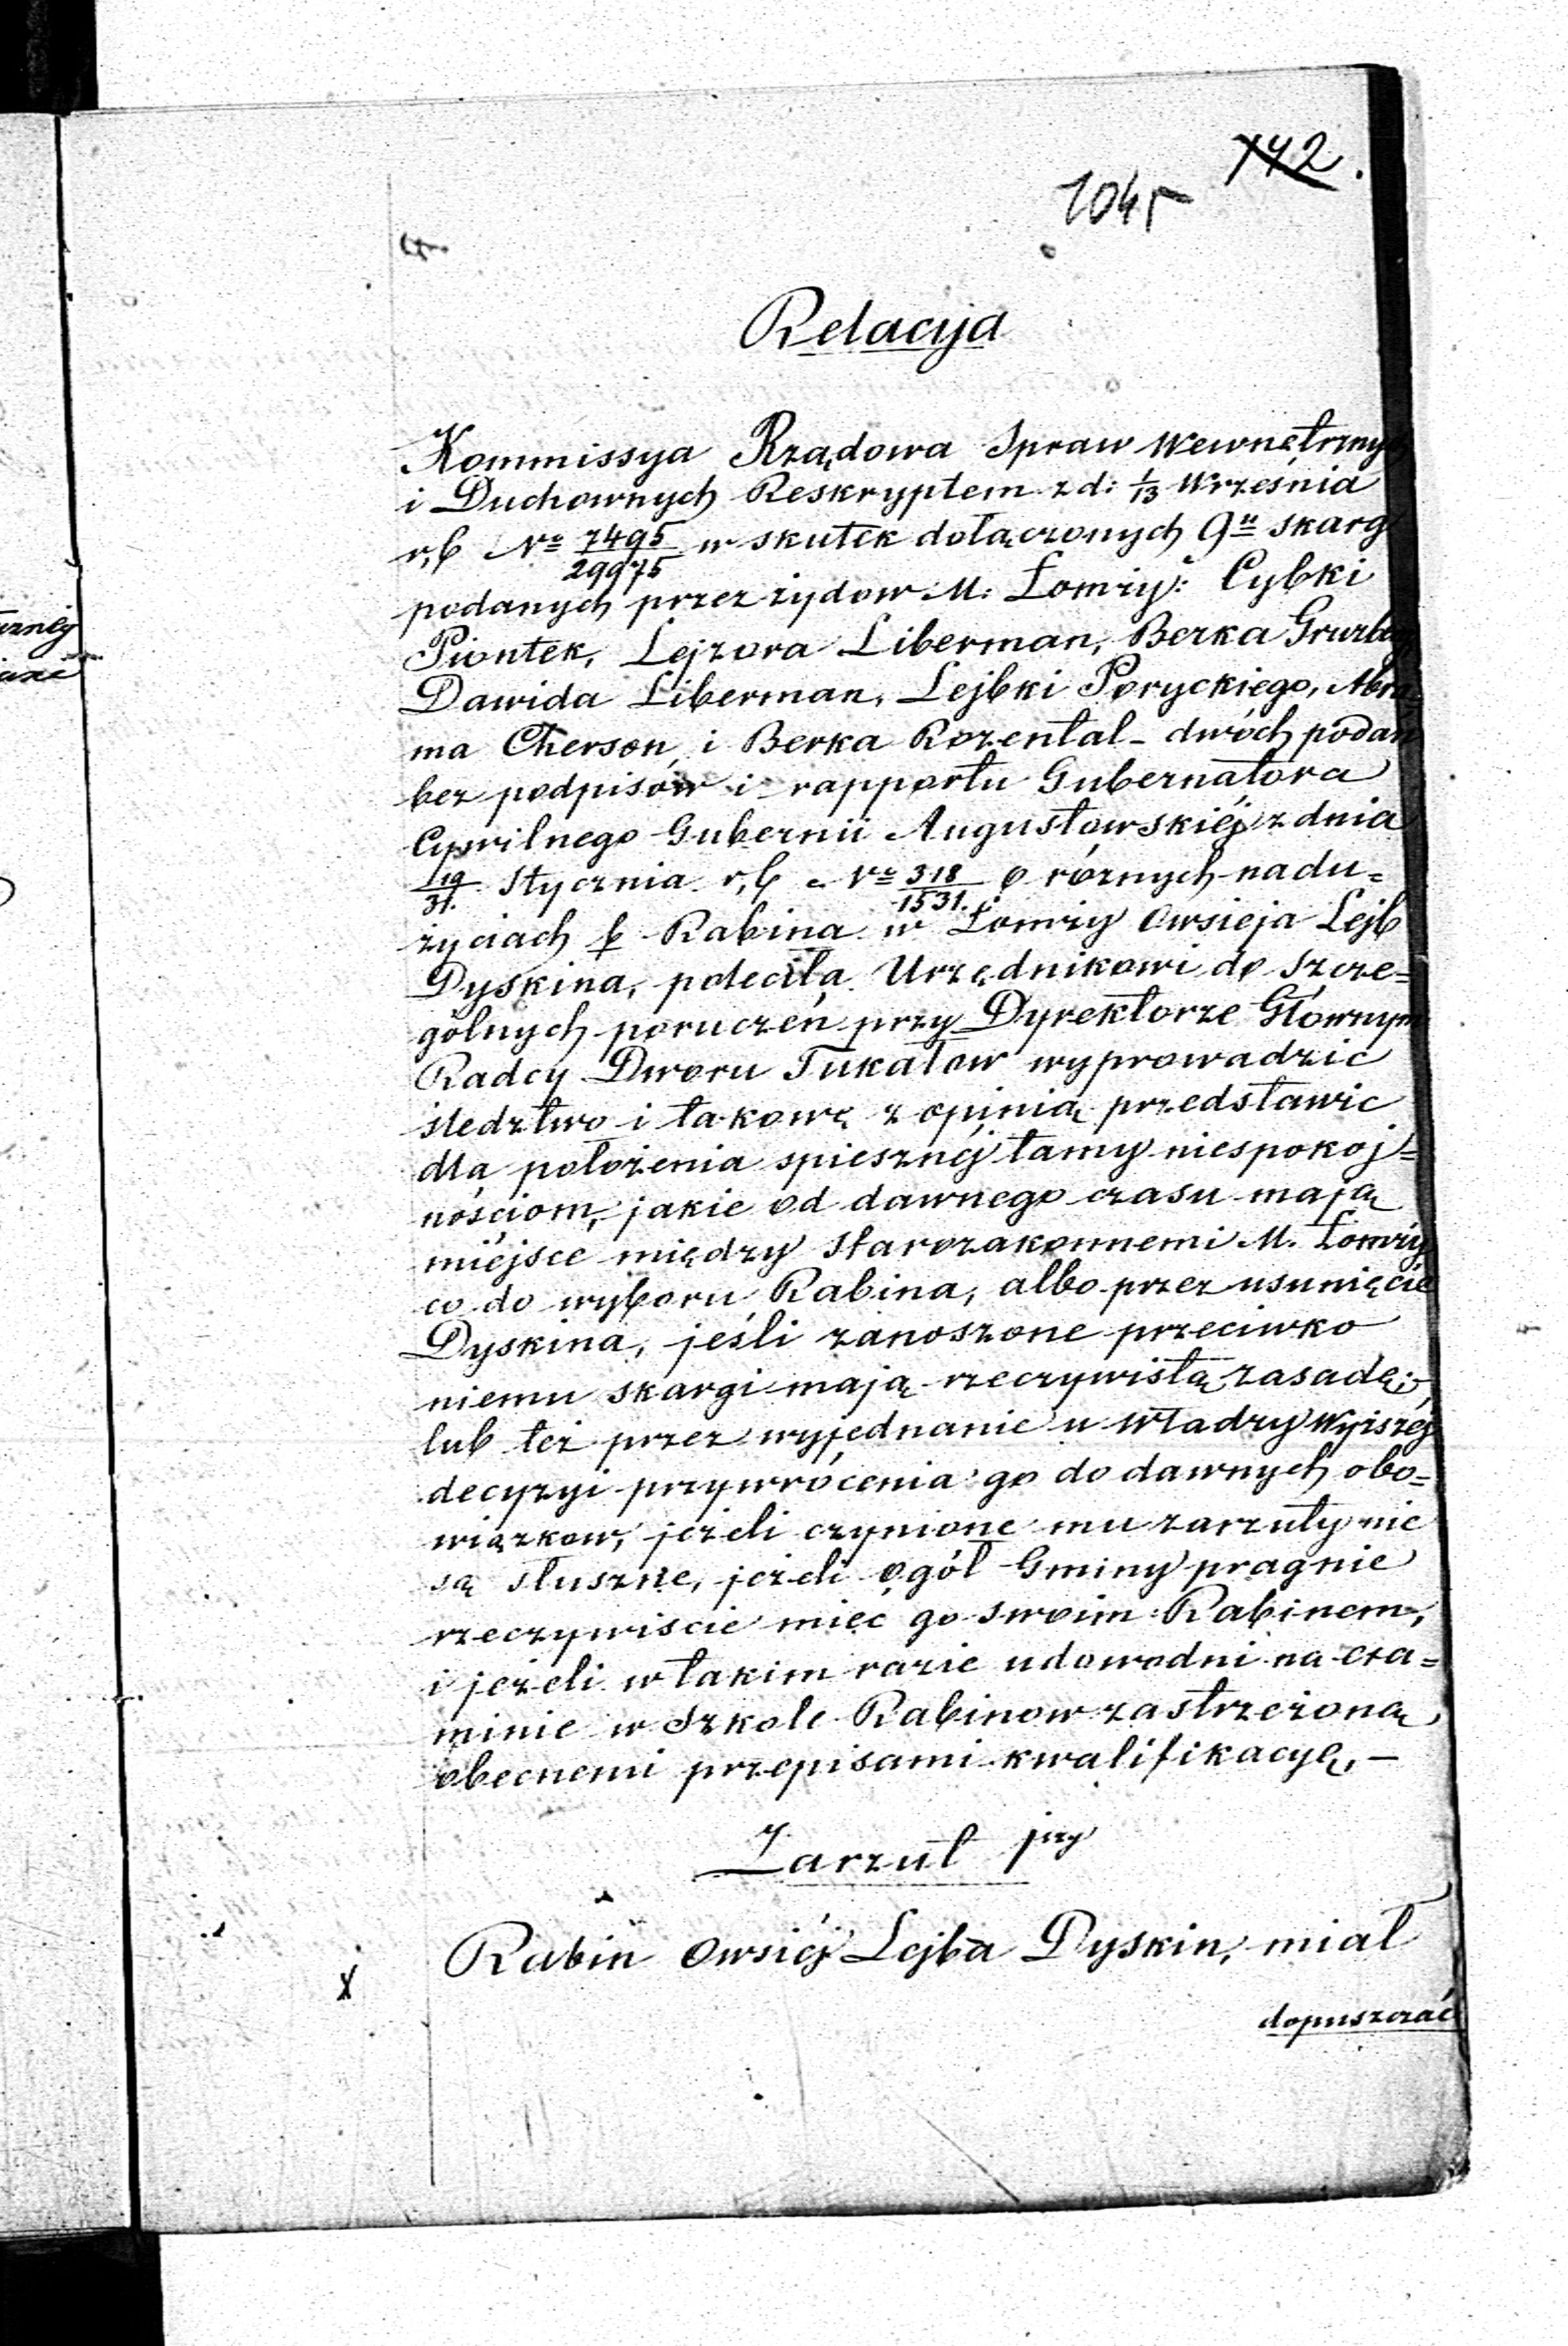 742.
1045
Relacyja
Kommissya Rządowa Spraw Wewnętrznych
i Duchownych Reskryptem z d: 1/13 Września
r, b Nº 7495/29975 w skutek dołączonych 9u skarg
podanych przez żydow M: Łomży: Cybki
Piontek, Lejzora Liberman, Berka
Dawida Liberman, Lejbki Poryckiego, Abra
ma Cherson, i Berka Rozental - dwóch podań
bez podpisów i rapportu Gubernatora
Cywilnego Gubernii Augustowskiéj z dnia
19/31. Stycznia r, b Nº 318/1531. o róznych nadu=
życiach b Rabina w Łomży Owsieja Lejb
Dyskina, poleciła Urzędnikowi do szcze=
gólnych poruczeń przy Dyrektorze Głównym
Radcy Dworu Tukałow wyprowadzić
śledztwo i takowę z opinią przedstawić
dla położenia spiesznéj tamy niespokoj=
nościom, jakie od dawnego czasu mają
miéjsce między Starozakonnemi M. Łomży
co do wyboru Rabina, albo przez usunięcie
Dyskina, jeśli zanoszone przeciwko
niemu skargi mają rzeczywistą zasadę,
lub też przez wyjednanie u Władzy Wyższéj
decyzyi przywrócenia go do dawnych obo=
wiązkow, jeżeli czynione mu zarzuty nie
są słuszne, jeżeli ogół Gminy pragnie
rzeczywiscie mieć go swoim Rabinem,
i jeżeli w takim razie udowodni na exa=
minie w Szkole Rabinow zastrzeżoną
obecnemi przepisami kwalifikacyę, —
Zarzut 1szy
Rabin Owsiéj Lejba Dyskin, miał
dopuszczać